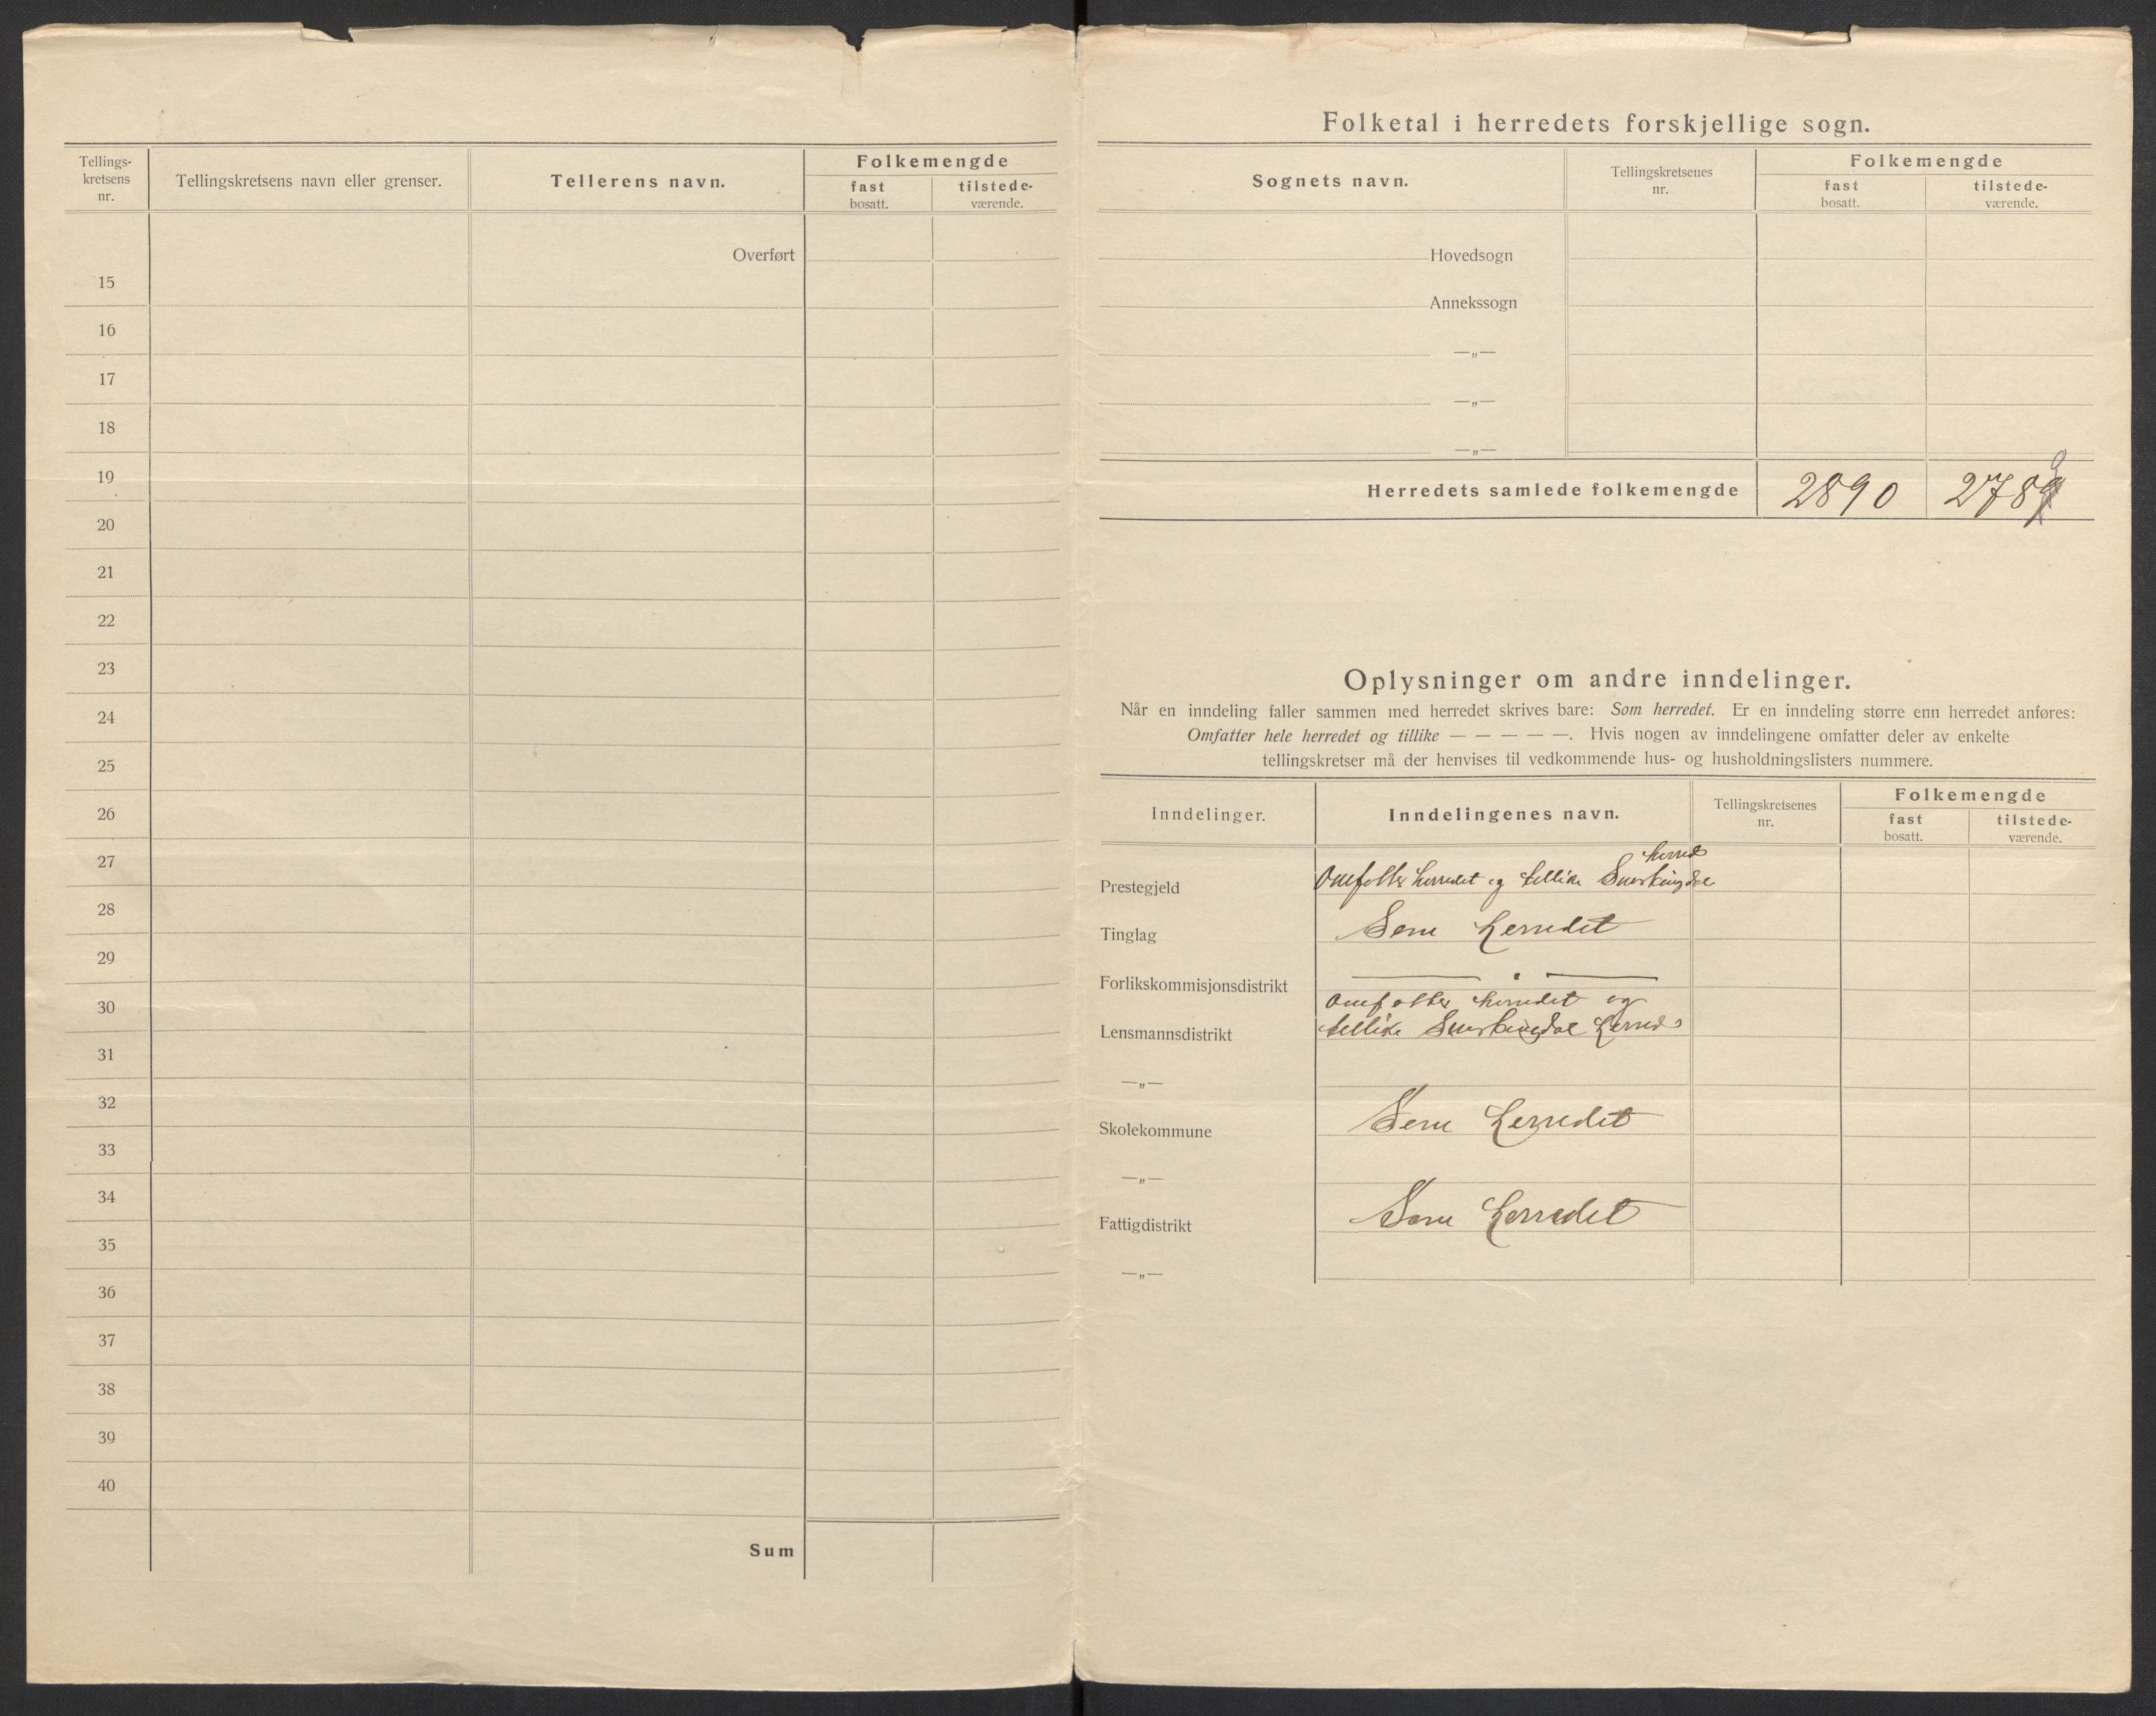 Tellings-
kretsens
nr.
Tellingskretsens navn eller grenser.
Tellerens navn.
Folkemengde
fast
bosatt.
tilstede-
værende.
Overført
15
16
17
18
19
20
21
22
23
24
25
26
27
28
29
30
31
32
33
34
35
36
37
38
39
40
Sum
Folketal i herredets forskjellige sogn.
Sognets navn.
Tellingskretsenes
nr.
Folkemengde
fast
bosatt.
tilstede-
værende.
Hovedsogn
Annekssogn
—„—
—„—
—„—
9
Herredets samlede folkemengde 2890 278
Oplysninger om andre inndelinger.
Når en inndeling faller sammen med herredet skrives bare: Som herredet. Er en inndeling større enn herredet anføres:
Omfatter hele herredet og tillike — — — — —. Hvis nogen av inndelingene omfatter deler av enkelte
tellingskretser må der henvises til vedkommende hus- og husholdningslisters nummere.
Inndelinger.
Inndelingenes navn.
Tellingskretsenes
nr.
Folkemengde
fast
bosatt.
tilstede-
værende.
herred
Prestegjeld Omfatter herredet og tillike
Tinglag Som herredet
Forlikskommisjonsdistrikt —„—
Omfatter herredet og
Lensmannsdistrikt tillike herred
—„—
Skolekommune Som herredet
—„—
Fattigdistrikt Som herredet
—„—